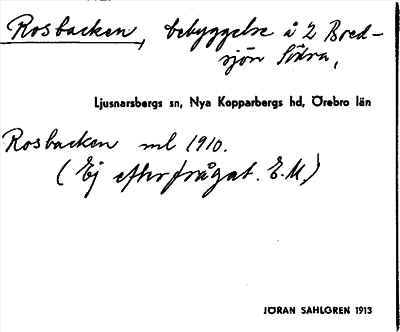 Rosbacken, bebyggelse å 2 Bred-
sjön Södra,
Ljusnarsbergs sn, Nya Kopparbergs hd, Örebro län
Rosbacken ml 1910.
(Ej efterfrågat. E.M.)
JÖRAN SAHLGREN 1913